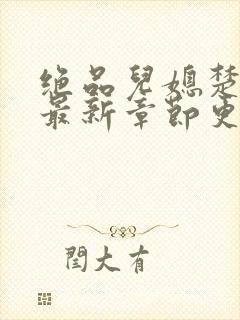 绝品儿媳楚
最新章节更
闰大有